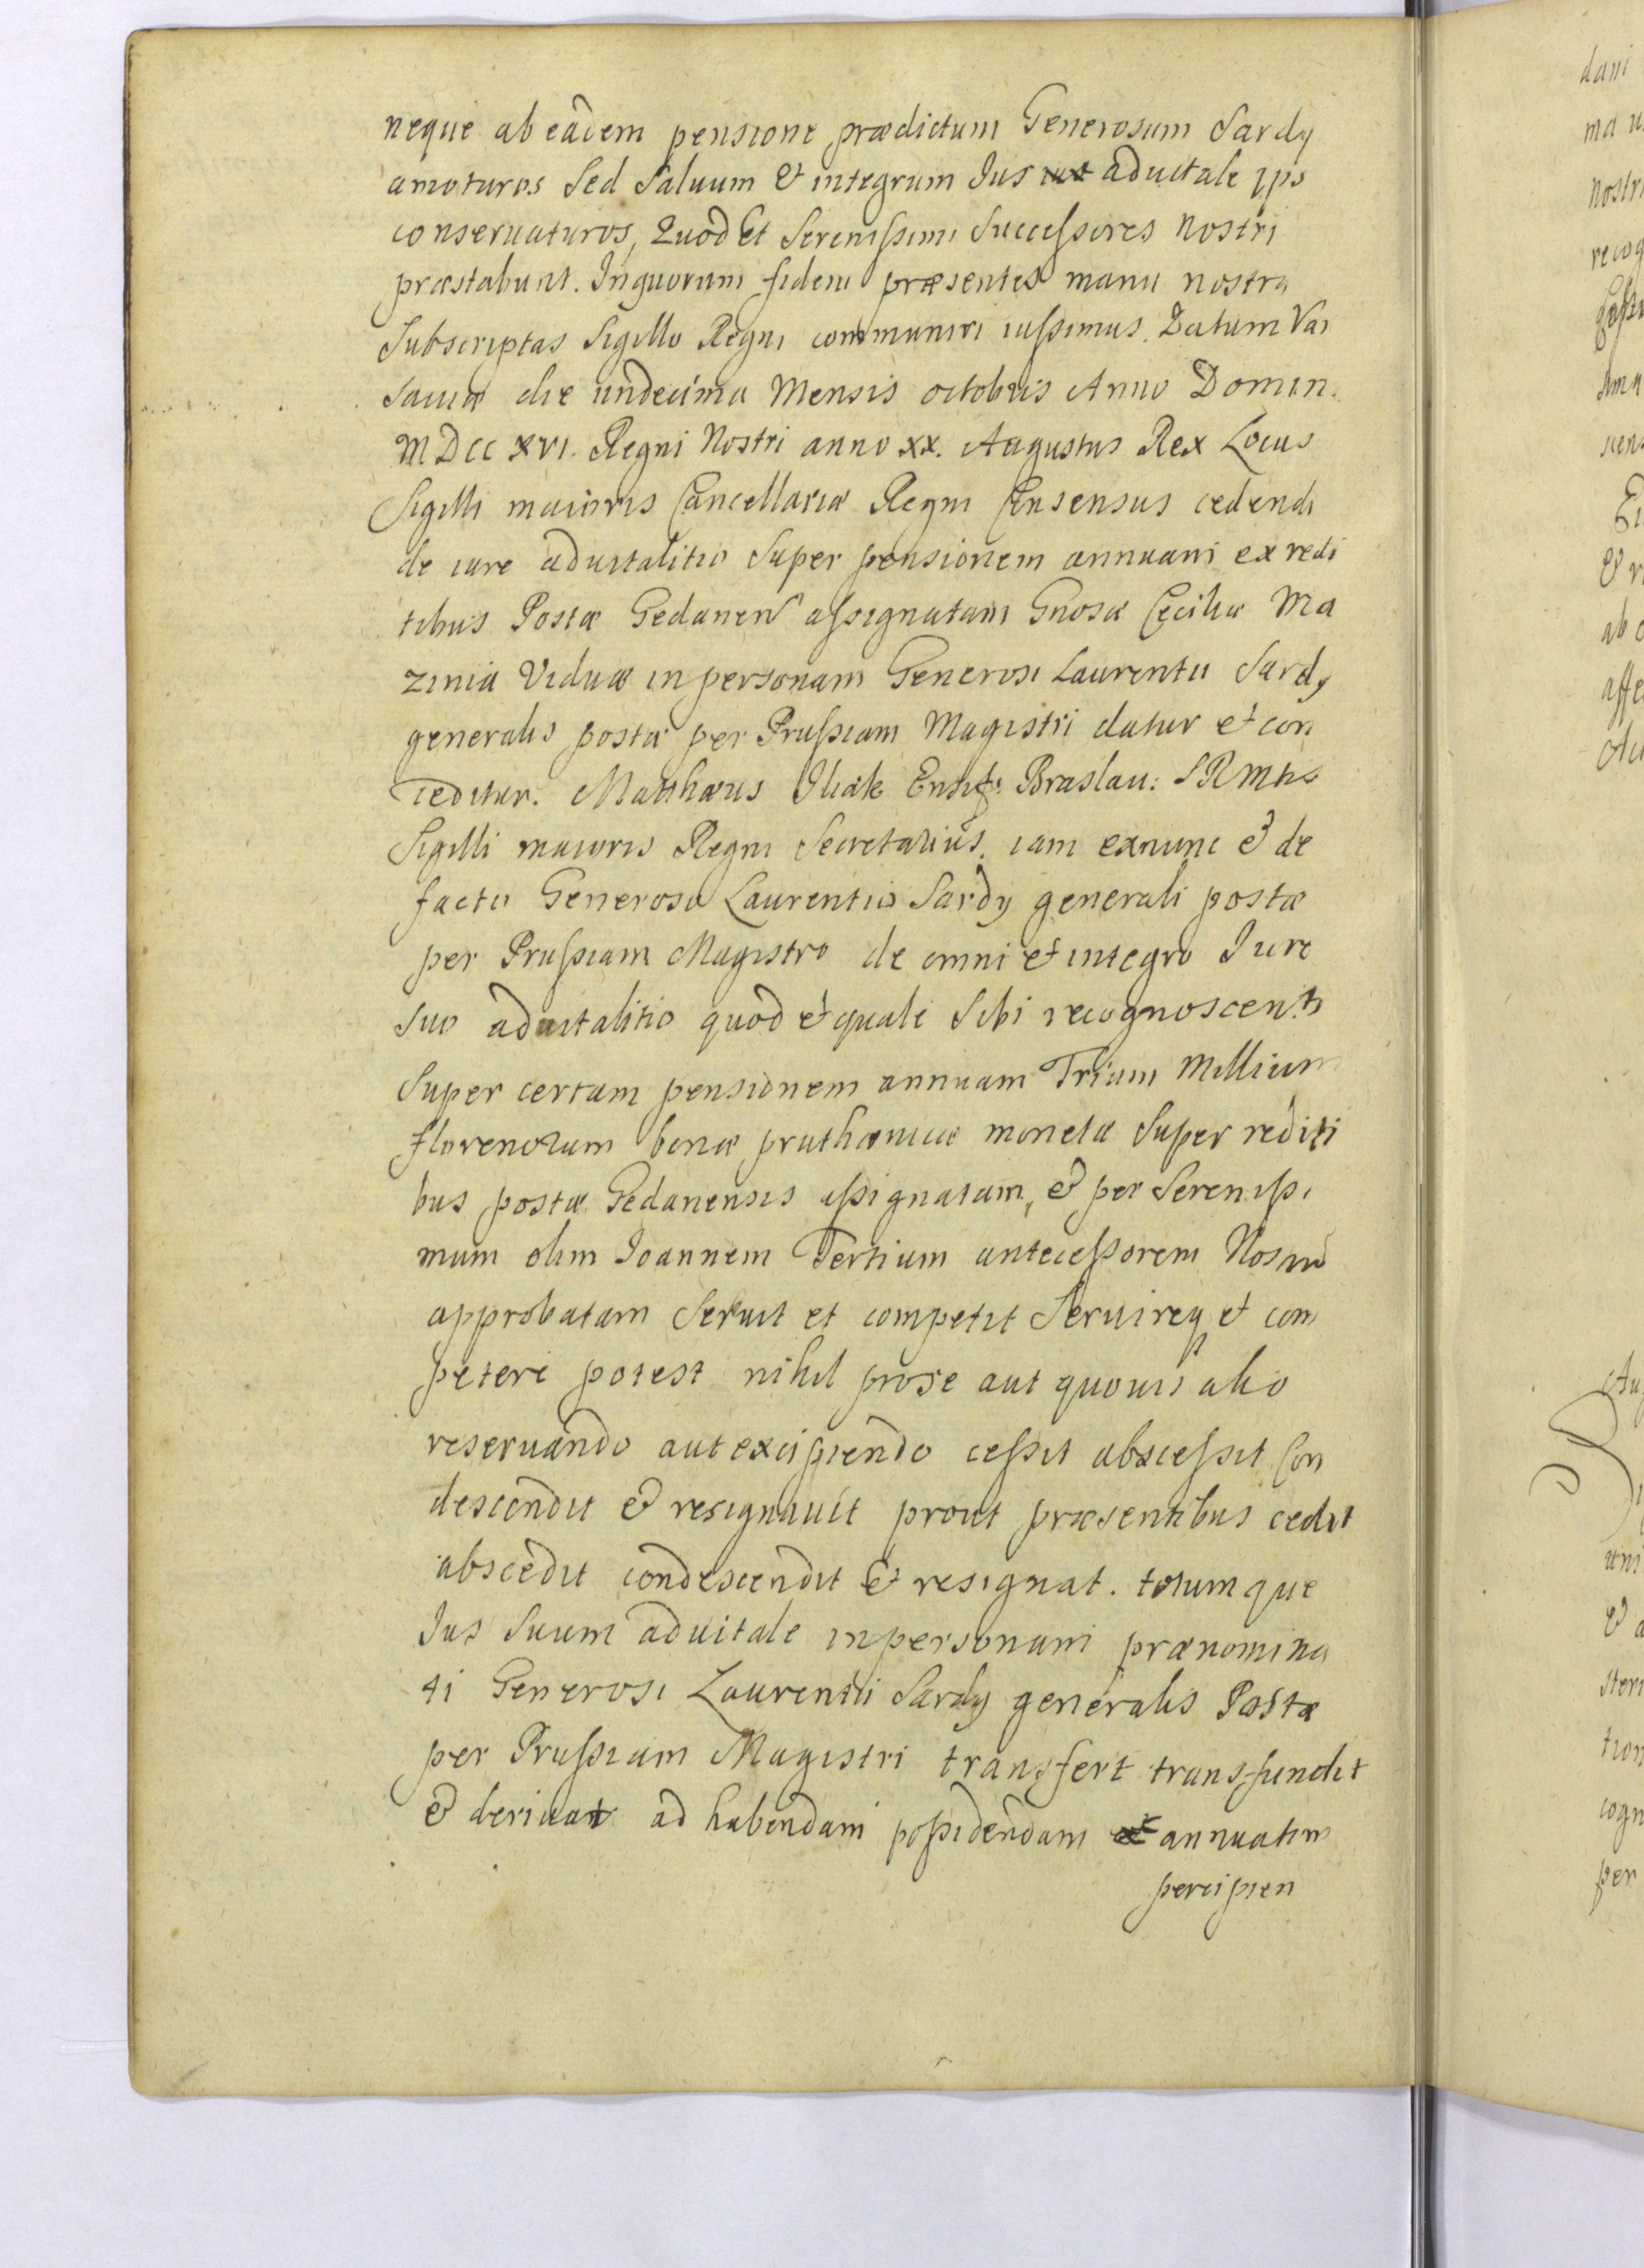 neque ab eadem pensione prædictum Generosum Sardy
amoturos Sed Saluum & integrum Jus aduitale ips
conseruaturos, Quod Et Serenissimi Successores Nostri
præstabunt. Inquorum fidem præsentes manu nostra
Subscriptas Sigillo Regni communiri iussimus. Datum Var
sauiæ die undecima Mensis octobris Anno Domin.
MDCCXVI. Regni Nostri anno XX. Augustus Rex Locus
Sigilli maioris Cancellariæ Regni Consensus cedendi
de iure aduitalitio Super pensionem annuam ex redi
tibus Postæ Gedanen assignatam Gnosæ Cæciliæ Ma
zinia Viduæ in personam Generosi Laurentii Sardy
generalis postæ per Prussiam Magistri datur et con
ceditur. Matthæus Iliak Ensif: Braslau: SRMtis
Sigilli maioris Regni Secretarius. iam exnunc & de
facto Generoso Laurentio Sardy generali postæ
per Prussiam Magistro de omni et integro Iure
suo aduitalitio quod et quale Sibi recognoscenti
Super certam pensionem annuam Trium Millium
florenorum bonæ pruthænicæ monetæ Super rediti
bus postæ Gedanensis assignatam, & per Serenissi
mum olim Joannem Tertium antecessorem Nostrū
approbatam Seruit et competit Seruireq et com
petere potest nihil prose aut quouis alio
reseruando aut excipiendo cessit abscessit Con
descendit & resignauit prout præsentibus cedit
abscedit condescendit & resignat. totumque
Jus Suum aduitale inpersonam prænomina
ti Generosi Laurentii Sardy generalis Postæ
per Prussiam Magistri transfert transfundit
& deriuat ad habendam possidendam annuatim
percipien